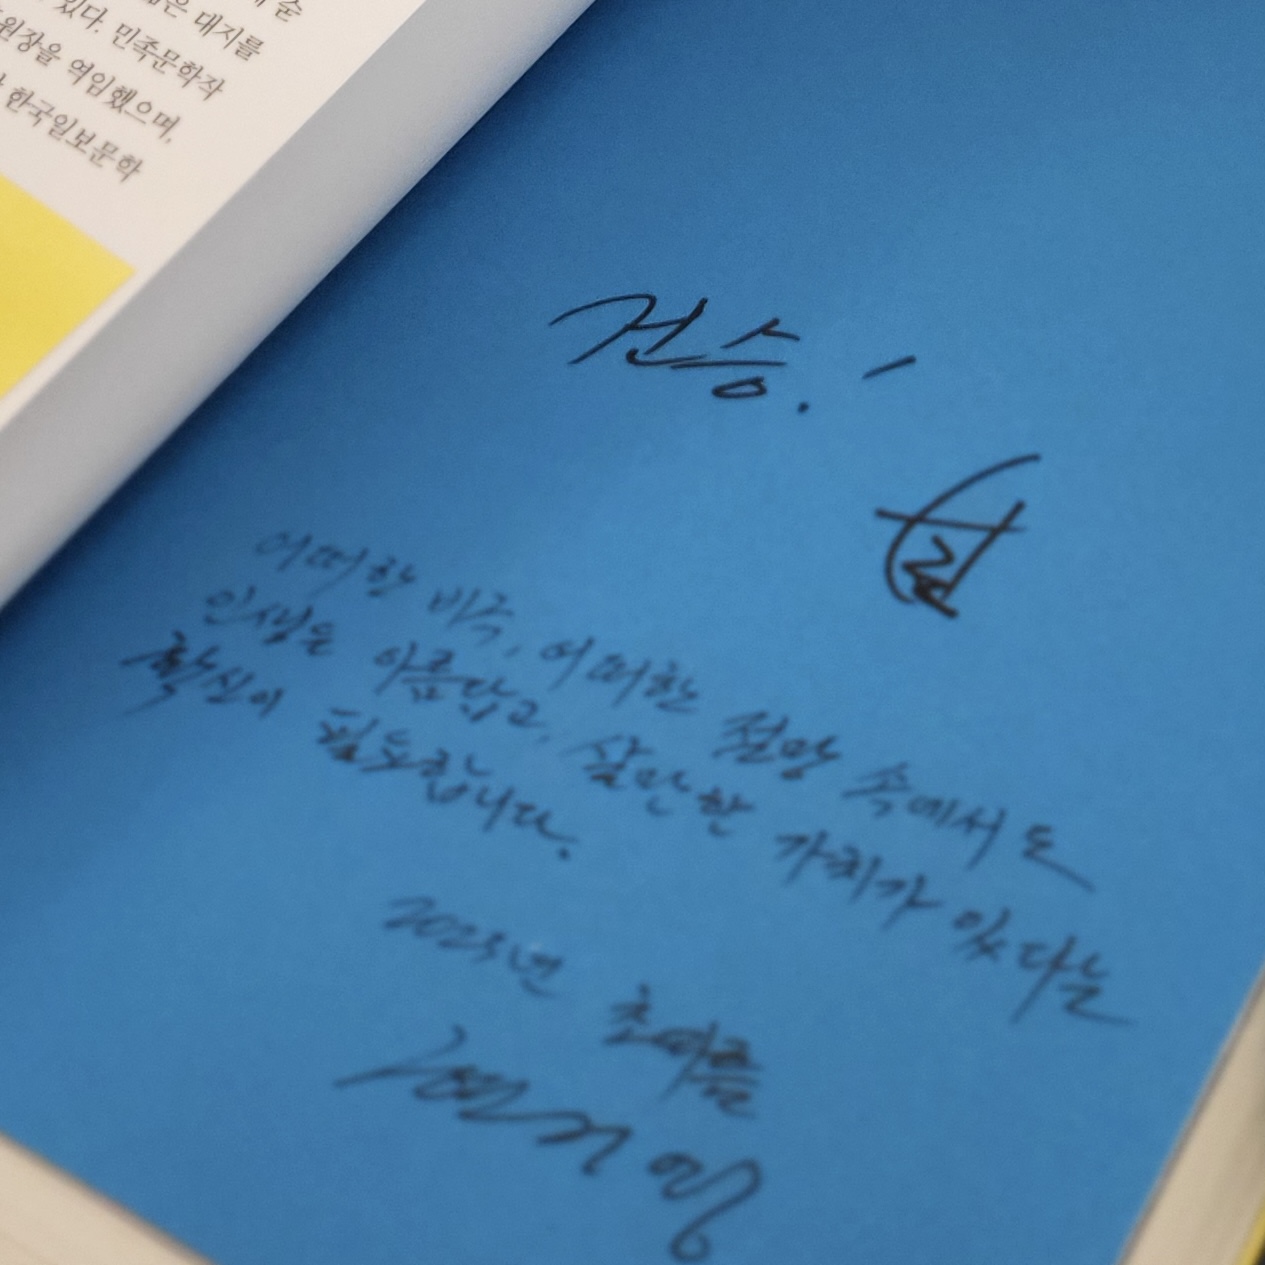 은 대지를
있다. 민족문학작
원장을 역임했으며,
한국일보문학
건승!
어떠한 비극, 어떠한 절망 속에서도
인생은 아름답고, 살만한 가치가 있다는
확신이 필요합니다.
2023년 초여름